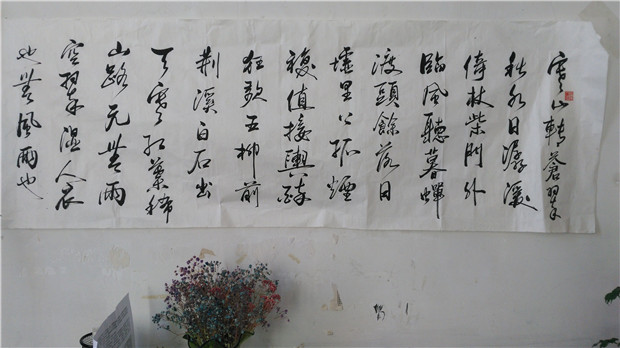 寒山轉蒼翠
秋水日潺湲
倚杖柴門外
臨風聽暮蟬
渡頭餘落日
墟里上孤煙
復值接輿醉
狂歌五柳前
荆溪白石出
天寒紅葉稀
山路元無雨
空翠濕人衣
也無風雨也